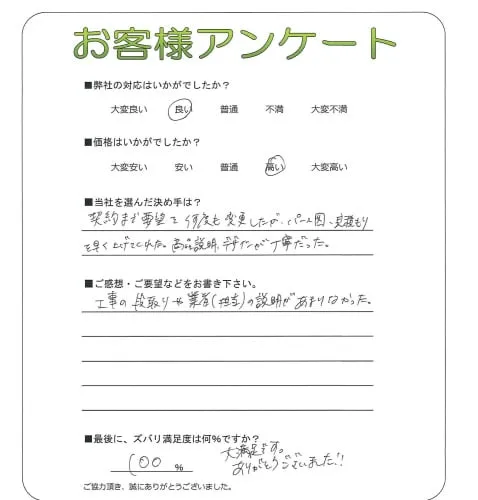 お客様アンケート
■弊社の対応はいかがでしたか？
大変良い 良い 普通 不満 大変不満
■価格はいかがでしたか？
大変安い 安い 普通 高い 大変高い
■当社を選んだ決め手は？
契約まで要望を何度も変更したが、パース図、見積もり
を早く上げてくれた。商品説明、デザインが丁寧だった。
■ご感想・ご要望などをお書き下さい。
工事の段取りや業者(担当)の説明があまりなかった。
■最後に、ズバリ満足度は何%ですか？
100 %
大満足です。
ありがとうございました!!
ご協力頂き、誠にありがとうございました。